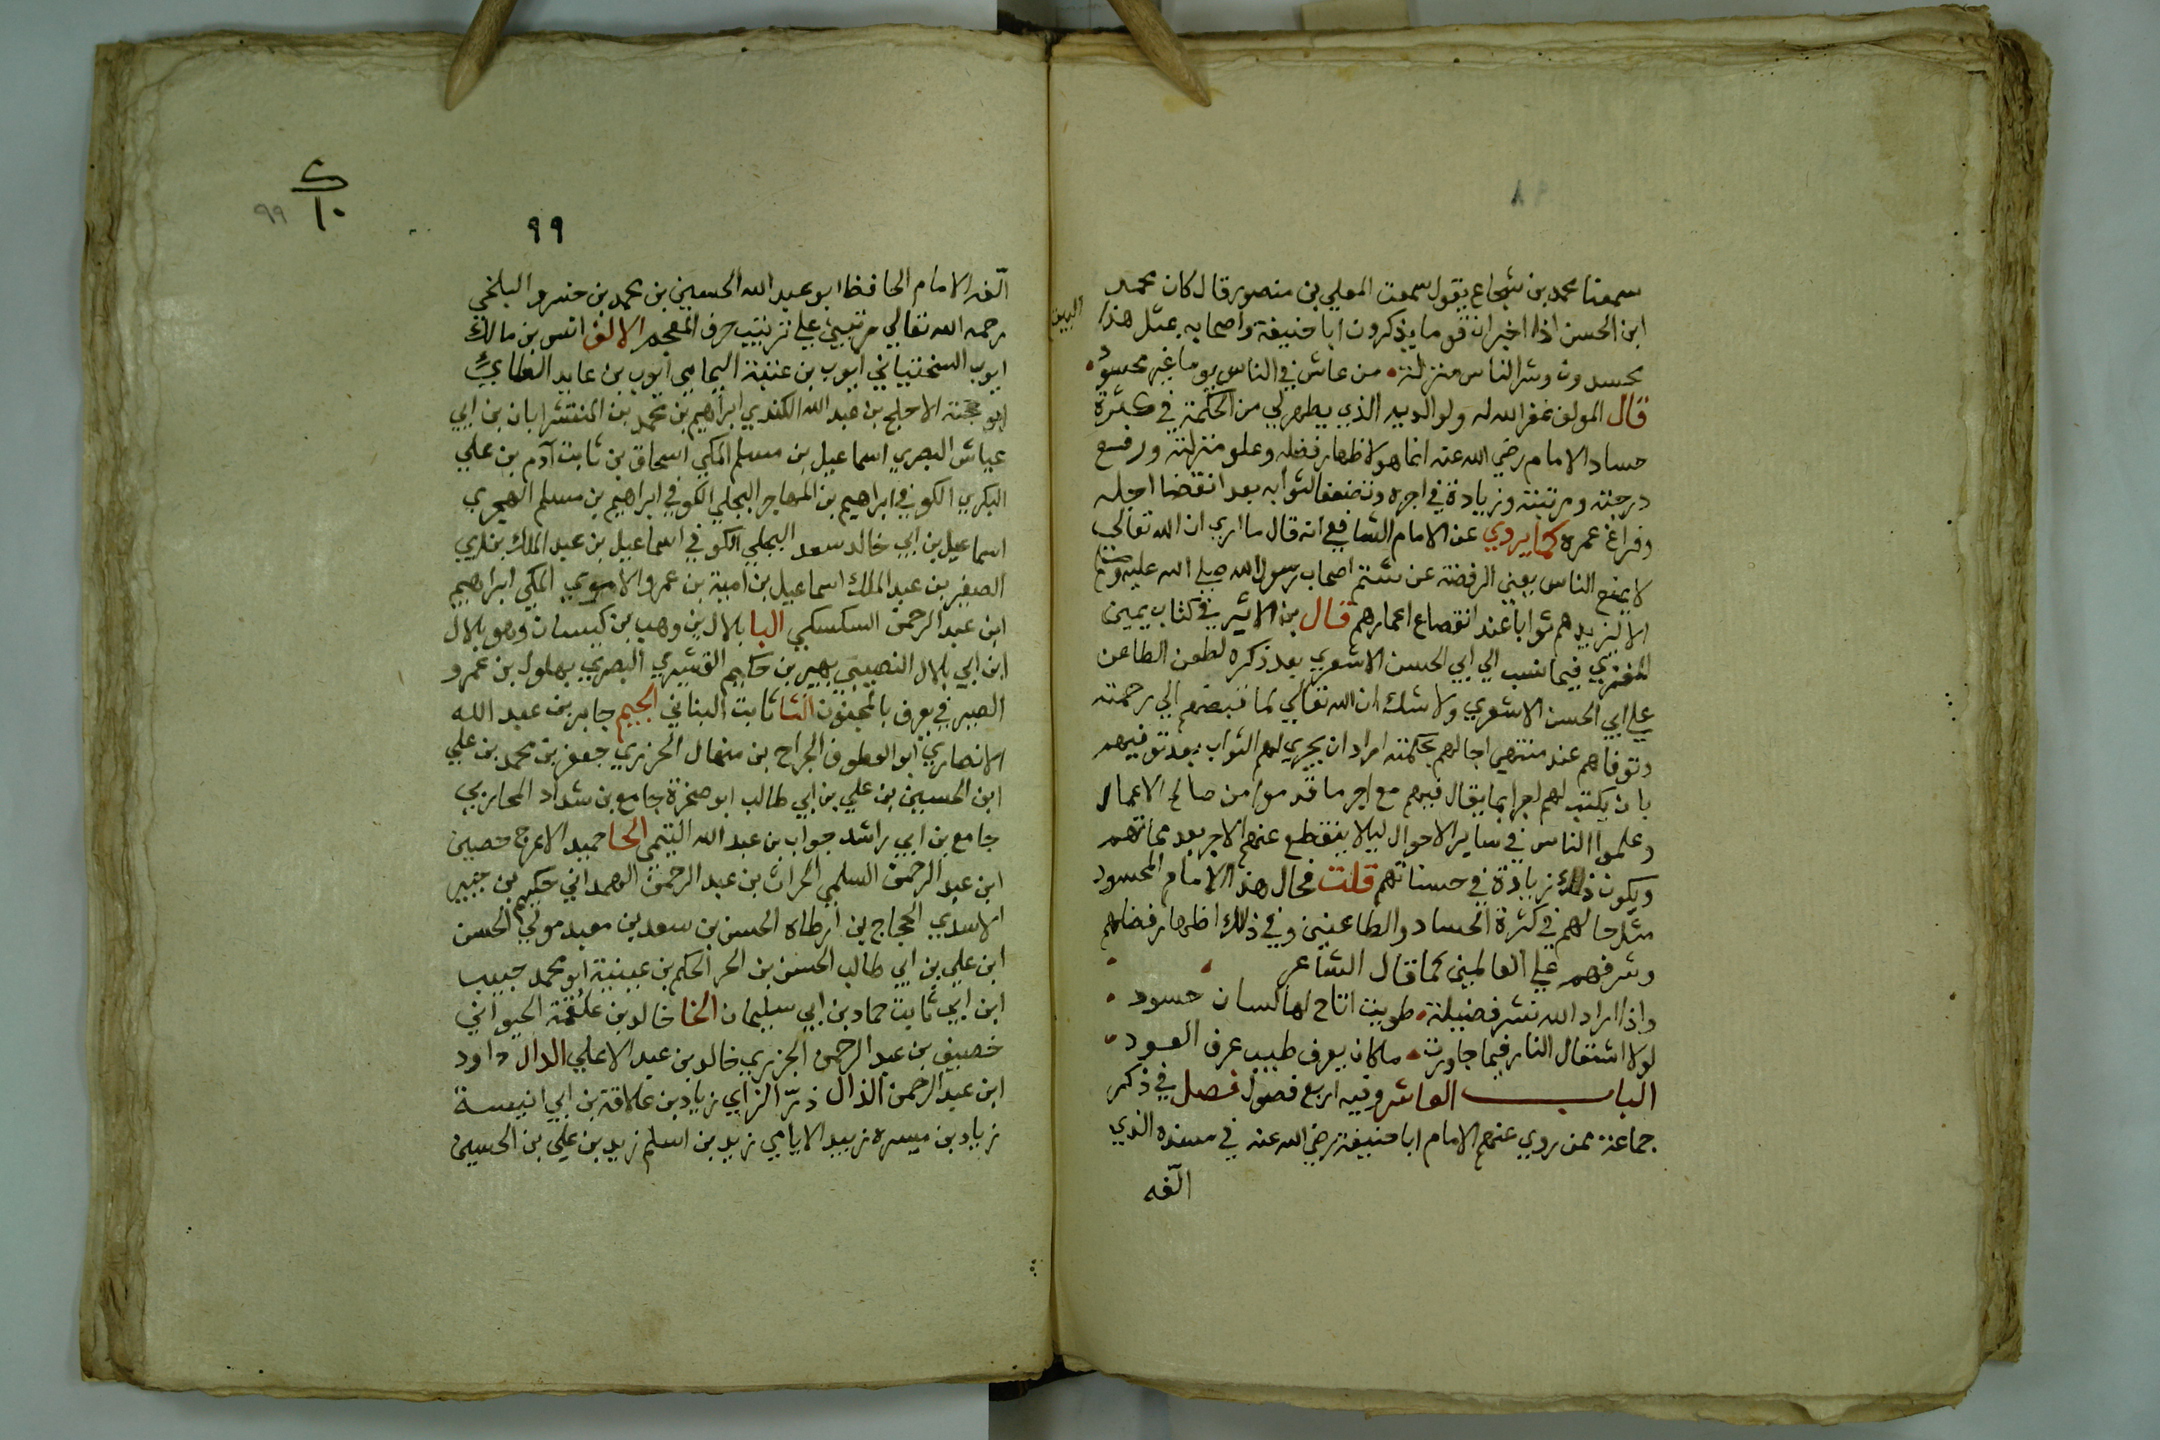 سمعنا محمد بن شجاع يقول سمعت المعلي بن منصور قال كان محمد
ابن الحسن اذا اخبر ان قوما يذكرون ابا حنيفة واصحابه يمثل هذا البيت
يحسدون وشر الناس منزلة من عاش في الناس يوما غير محسود
قال المولف غفر الله له ولوالديه الذي يظهر لي من الحكمة في كثرة
حساد الامام رضي الله عنه انما هو لاظهار فضله وعلو منزلته ورفع
درجته ومرتبته وزيادة في اجره وتضعفا لثوابه بعد انقضا اجله
وفراغ عمره كما يروي عن الامام الشافعي انه قال ما اري ان الله تعالي
لا يمنع الناس يعني الرفضة عن شتم اصحاب رسول الله صلي الله عليه وسلم
الا ليزيدهم ثوابا عند انقصاع اعمارهم قال بن الاثير في كتاب يمين
المفتري فيما نسب الي ابي الحسن الاشعري بعد ذكره لطعن الطاعن
علي ابي الحسن الاشعري ولا شك ان الله تعالي لما قبضهم الي رحمته
وتوفاهم عند منتهي اجالهم بحكمته اراد ان يجري لهم الثواب بعد توفيهم
بان يكتب لهم اجرا بما يقال فيهم مع اجر ما قدموا من صالح الاعمال
وعلموا الناس في ساير الاحوال ليلا ينقطع عنهم الاجر بعد مماتهم
ويكون ذلك زيادة في حسناتهم قلت فحال هذا الامام المحسود
مثل حالهم في كثرة الحساد والطاعنين وفي ذلك اظهار فضلهم
وشرفهم علي العالمين كما قال الشاعر
واذا اراد الله نشر فضيلة طويت اتاح لها لسان حسود
لولا اشتعال النار فيما جاورت ما كان يعرف طيب عرف العود
الباب العاشر وفيه اربع فصول فصل في ذكر
جماعة ممن روي عنهم الامام ابا حنيفة رضي الله عنه في مسنده الذي
الّفه
٩٩
٩٩
١٠
الّفه الامام الحافظ ابو عبد الله الحسين بن محمد بن خسرو البلخي
رحمه الله تعالي مرتبين علي ترتيب حرف المعجم الالف انس بن مالك
ايوب السختياني ايوب بن عتبة اليمامي ايوب بن عايد الطايي
ابو حجية الاجلح بن عبد الله الكندي ابراهيم بن محمد بن المنتشر ابان بن ابي
عياش البصري اسماعيل بن مسلم المكي اسحاق بن ثابت آدم بن علي
البكري الكوفي ابراهيم بن المهاجر البجلي الكوفي ابراهيم بن مسلم الهجري
اسماعيل بن ابي خالد سعد البجلي الكوفي اسماعيل بن عبد الملك بن ابي
الصفير بن عبد الملك اسماعيل بن امية بن عمرو الاموي المكي ابراهيم
ابن عبد الرحمن السكسكي البا بلال بن وهب بن كيسان وهو بلال
ابن ابي بلال النصيبي بهير بن حكيم القشيري البصري بهلول بن عمرو
الصيرفي يعرف بالمجنون الثا ثابت البناني الجيم جابر بن عبد الله
الانصاري ابو العطوف الجراح بن منهال الجزري جعفر بن محمد بن علي
ابن الحسين بن علي بن ابي طالب ابو صخرة جامع بن شداد المحاربي
جامع بن ابي راشد جواب بن عبد الله التيمي الحا حميد الاعرج حصين
ابن عبد الرحمن السلمي الحراث بن عبد الرحمن الهمداني حكيم بن جبير
الاسدي الحجاج بن ارطاه الحسن بن سعد بن معبد مولي الحسن
ابن علي بن ابي طالب الحسن بن الحر الحكم بن عيينية ابو محمد حبيب
ابن ابي ثابت حماد بن ابي سليمان الخا خالد بن علقمة الحيواني
خصيف بن عبد الرحمن الجزري خالد بن عبد الاعلي الدال داود
ابن عبد الرحمن الذال ذرّ الزاي زياد بن علاقة بن ابي انيسة
زياد بن ميسره زبيد الايامي زيد بن اسلم زيد بن علي بن الحسين